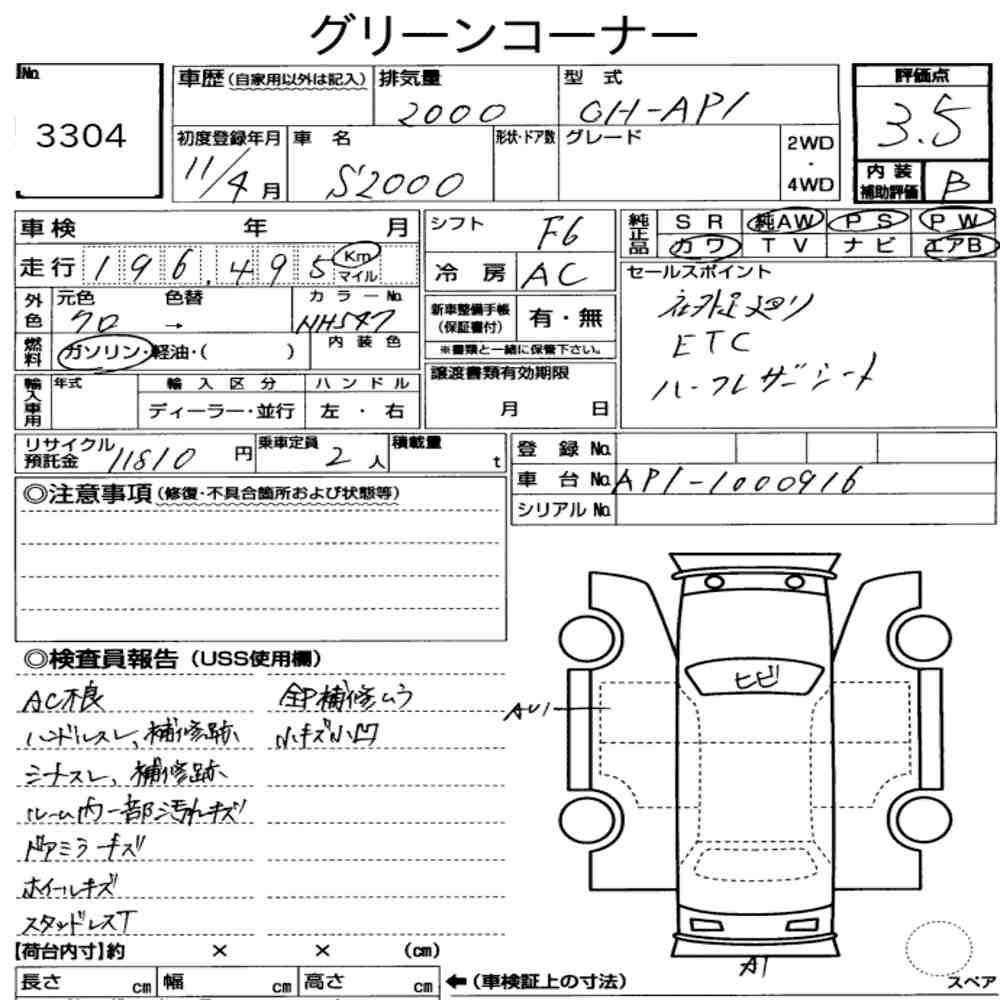 グリーンコーナー
No.
3304
車歴 (自家用以外は記入)
排気量
2000
型 式
GH-AP1
初度登録年月
11/4月
車 名
S2000
形状・ドア数
グレード
2WD
・
4WD
評価点
3.5
内 装
補助評価
B
車検 年 月
走行 196,495 Km マイル
外色
元色 色替
クロ →
カラーNo.
NH547
燃料
ガソリン・軽油・( )
内 装 色
輸入車用
年式
輸 入 区 分
ディーラー・並行
ハ ン ド ル
左 ・ 右
シフト
F6
冷 房
AC
新車整備手帳
(保証書付)
有・無
※書類と一緒に保管下さい。
譲渡書類有効期限
月 日
純正品
SR 純AW PS PW
カワ TV ナビ エアB
セールスポイント
社外足廻り
ETC
ハーフレザーシート
リサイクル
預託金 11810 円
乗車定員
2人
積載量
t
登 録 No.
車 台 No. AP1-1000916
シリアル No.
◎注意事項 (修復・不具合箇所および状態等)
◎検査員報告 (USS使用欄)
AC不良
ハンドルスレ、補修跡
シフトスレ、補修跡
ルーム内一部汚れキズ
ドアミラーキズ
ホイールキズ
スタッドレスT
全P補修ムラ
小キズ小凹
ヒビ
AU1
A1
スペア
【荷台内寸】約 × × (cm)
長さ cm 幅 cm 高さ cm
←(車検証上の寸法)